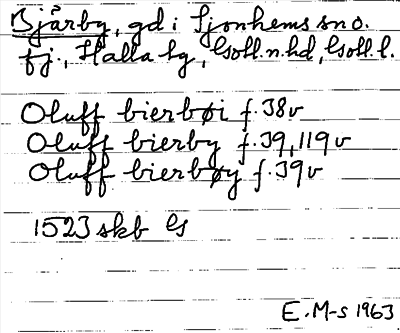 Bjärby, gd i Sjonhems sn o.
fj., Halla tg, Gotl. n. hd, Gotl. l.
Oluff bierbøi f. 38v
Oluff bierby f. 39, 119v
Oluff bierbøy f. 39v
1523 skb Gs
E. M-s 1963